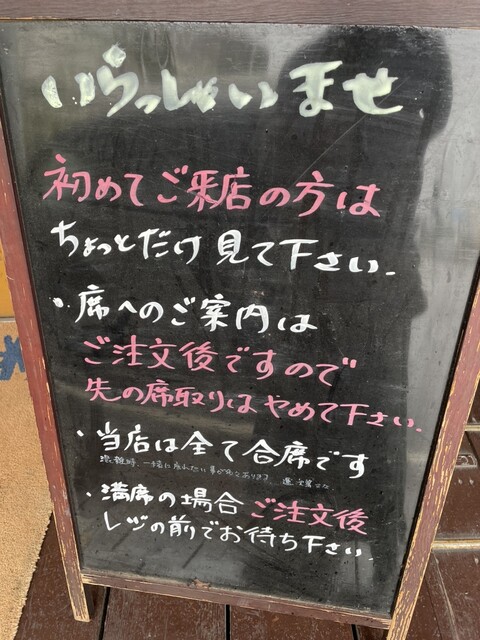 いらっしゃいませ
初めてご来店の方は
ちょっとだけ見て下さい.
・席へのご案内は
ご注文後ですので
先の席取りはやめて下さい.
・当店は全て合席です
混雑時、一緒に座れない事が
・満席の場合ご注文後
レジの前でお待ち下さい.